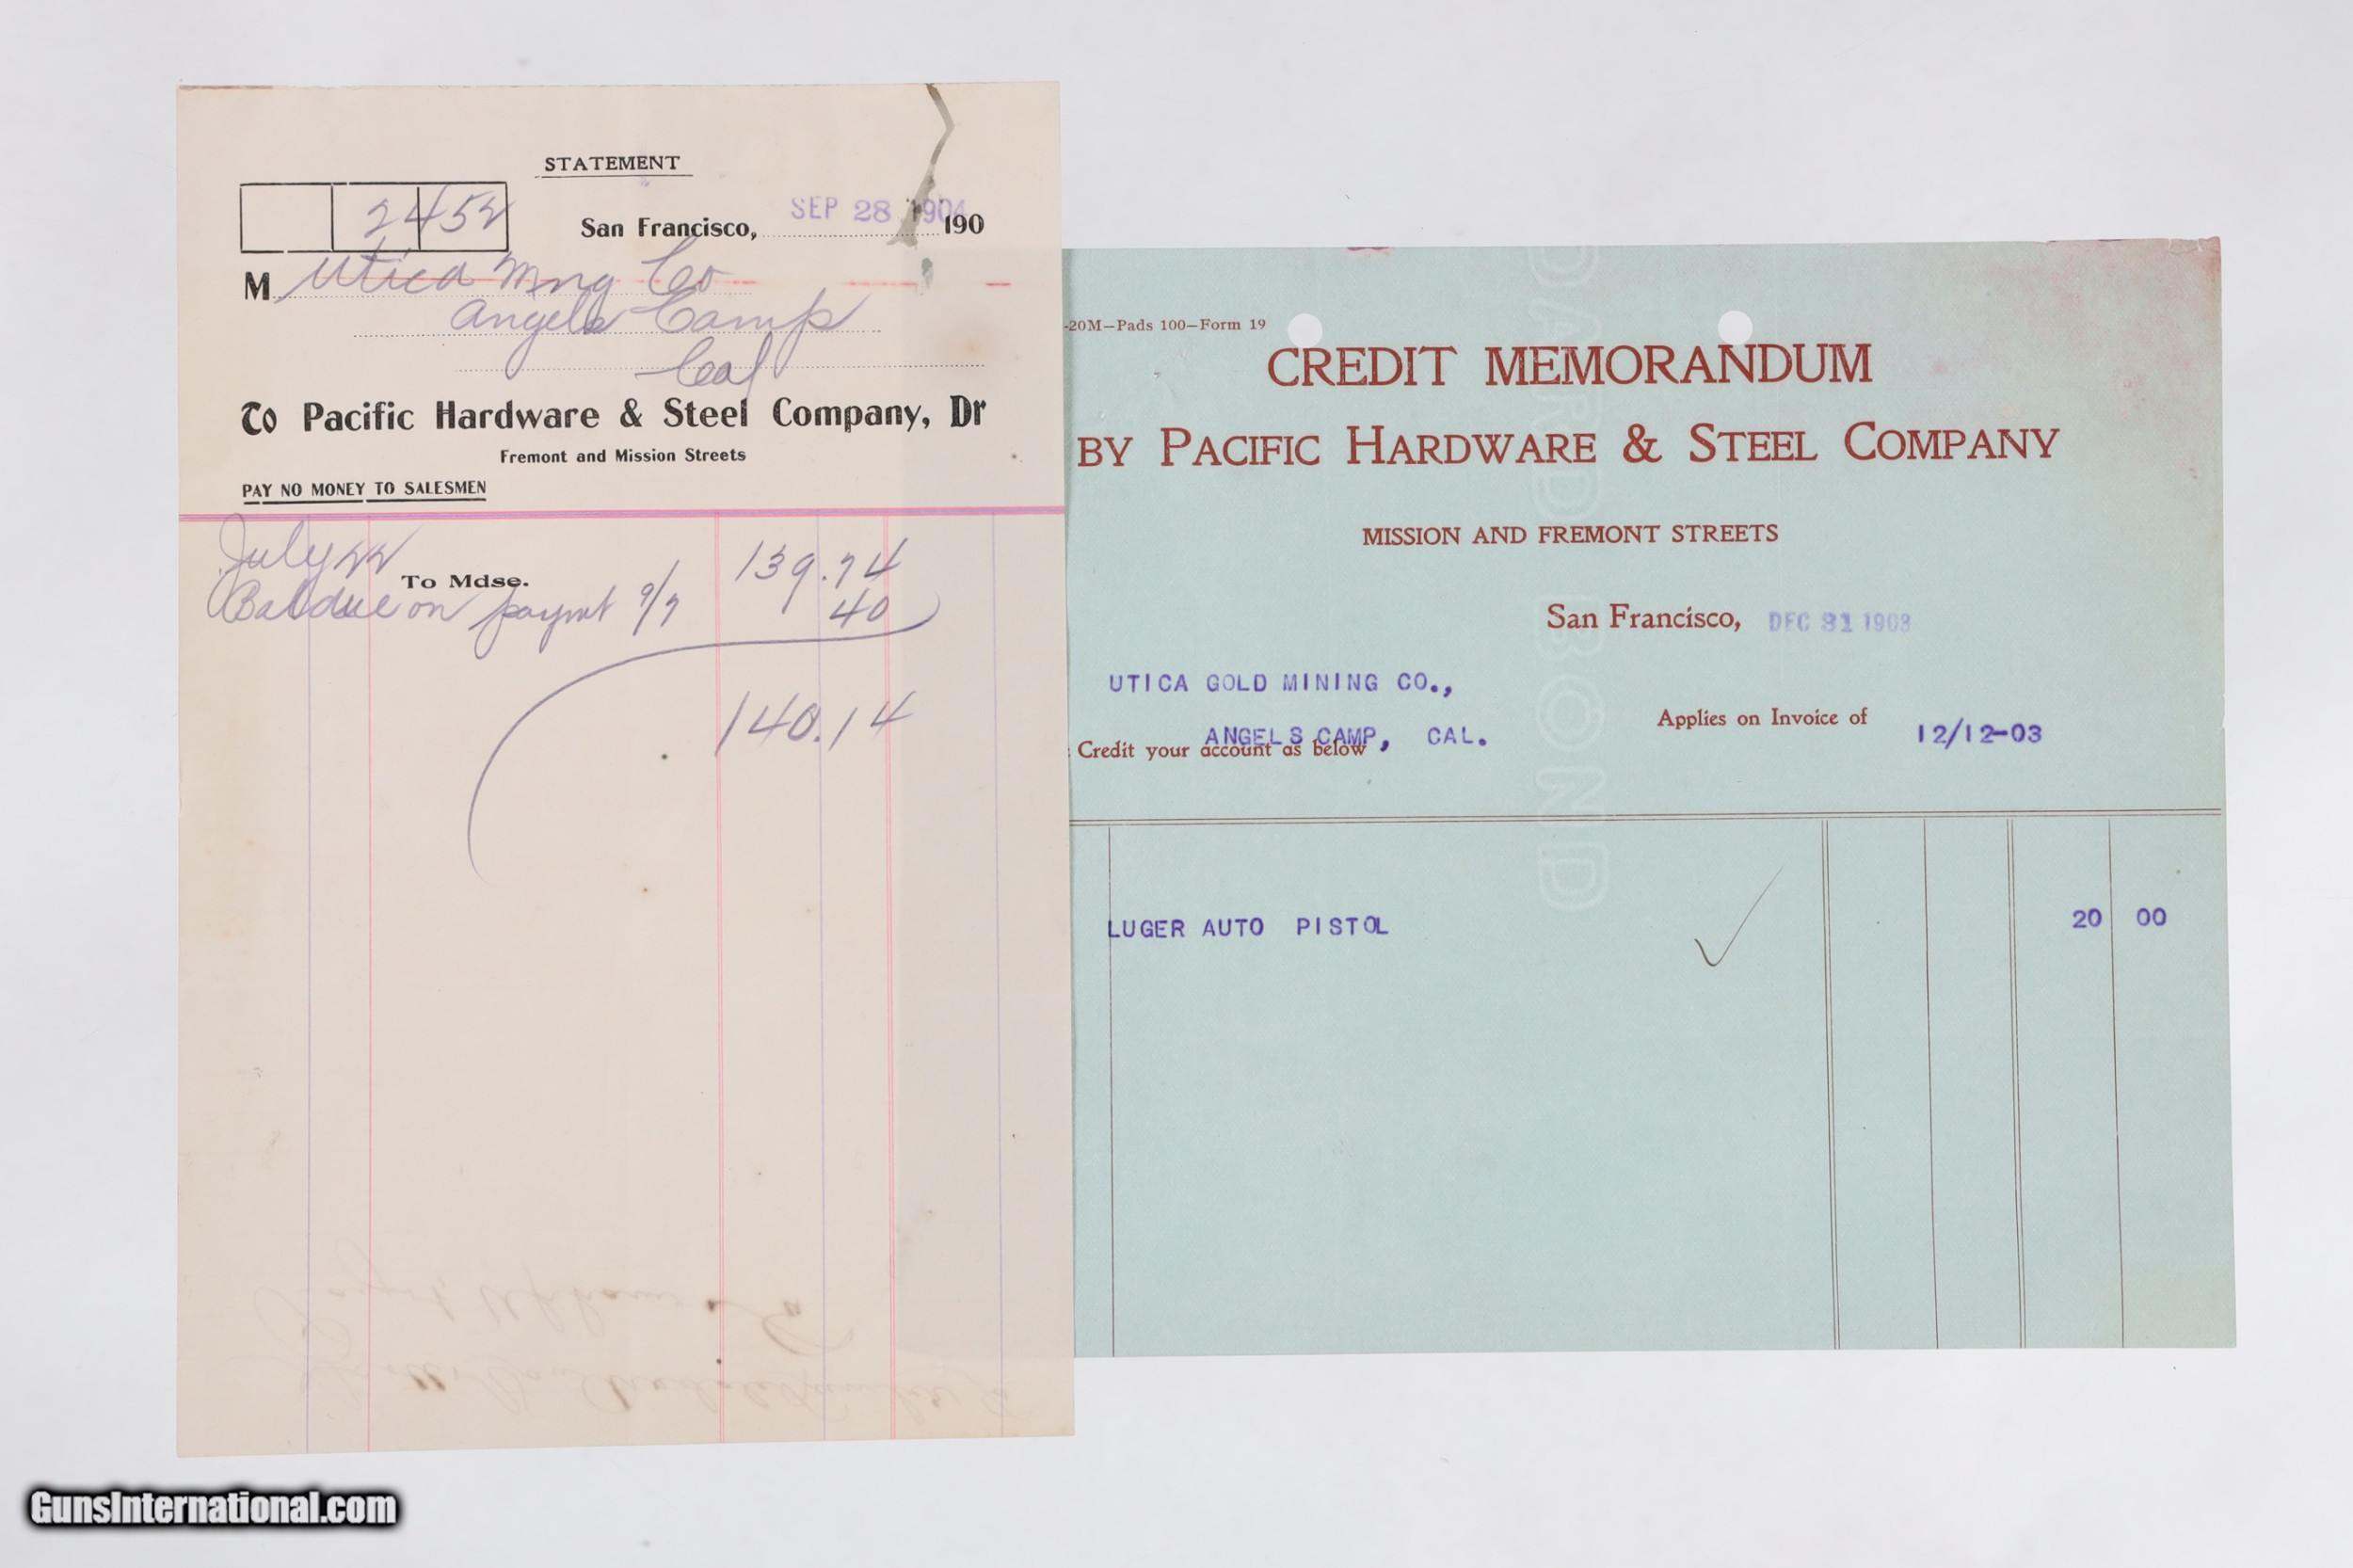 STATEMENT
24 52
San Francisco, SEP 28 1904 190
M Utica Mng Co
Angels Camp
Cal
To Pacific Hardware & Steel Company, Dr
Fremont and Mission Streets
PAY NO MONEY TO SALESMEN
July 22
To Mdse. 139.74
Bal due on paymt 9/7 40
140.14
-20M-Pads 100-Form 19
CREDIT MEMORANDUM
BY PACIFIC HARDWARE & STEEL COMPANY
MISSION AND FREMONT STREETS
San Francisco, DEC 31 1903
UTICA GOLD MINING CO.,
ANGELS CAMP, CAL.
Applies on Invoice of 12/12-03
Credit your account as below
LUGER AUTO PISTOL 20 00
BOND
GunsInternational.com